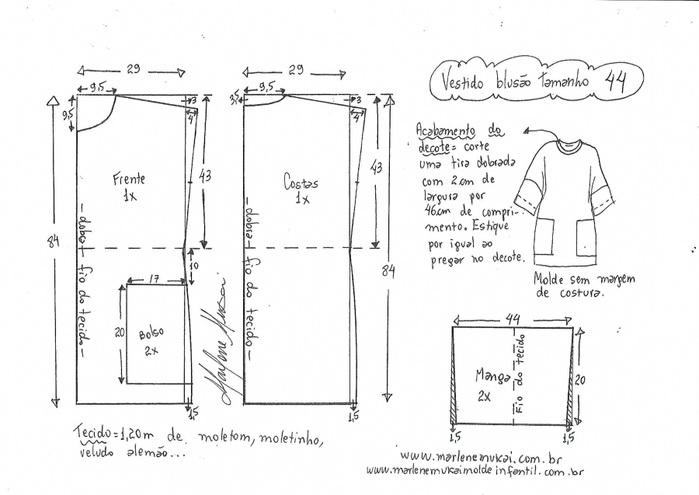 Vestido blusão tamanho 44
29
9,5
9,5
3
4
Frente
1x
43
84
-dobra- fio do tecido-
10
17
20
Bolso
2x
1,5
29
9,5
3,5
3
4
Costas
1x
43
84
-dobra- fio do tecido-
1,5
Marlene Mukai
Acabamento do
decote= corte
uma tira dobrada
com 2cm de
largura por
46cm de compri-
mento. Estique
por igual ao
pregar no decote.
Molde sem margem
de costura.
44
Manga
2x
Fio do tecido
20
1,5
1,5
Tecido=1,20m de moletom, moletinho,
veludo alemão...
www.marlenemukai.com.br
www.marlenemukaimoldeinfantil.com.br